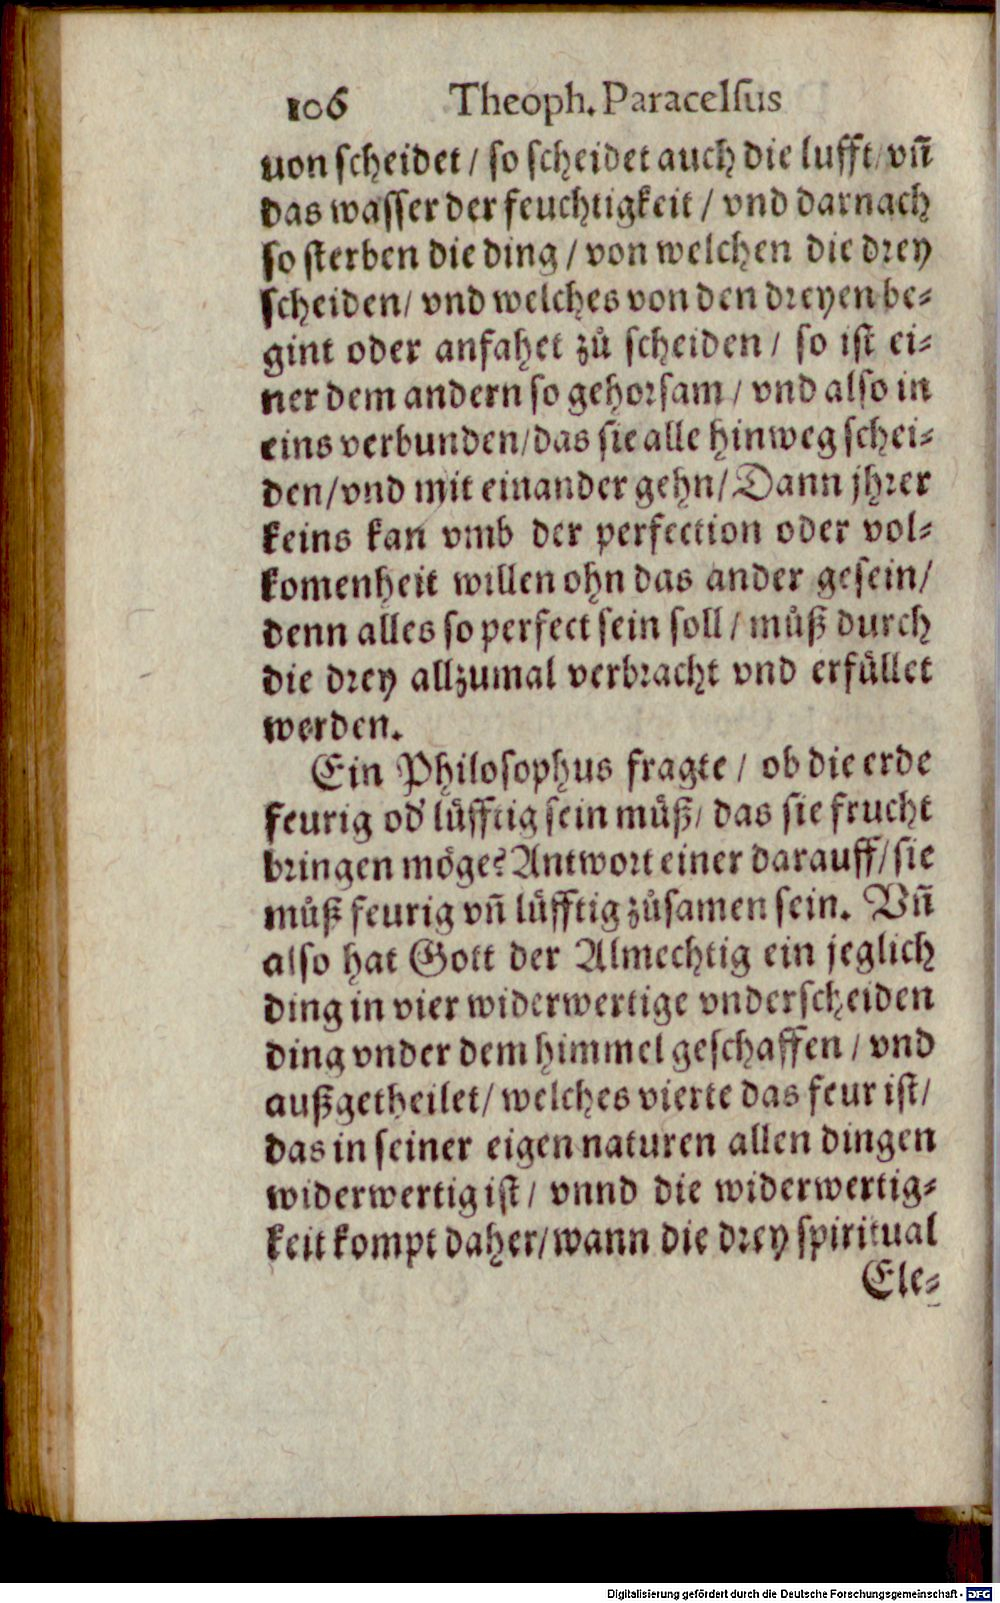 106 Theoph. Paracelſus
von ſcheidet / ſo ſcheidet auch die lufft / vñ
das waſſer der feuchtigkeit / vnd darnach
ſo ſterben die ding / von welchen die drey
ſcheiden / vnd welches von den dreyen be⸗
gint oder anfahet zů ſcheiden / ſo iſt ei⸗
ner dem andern ſo gehorſam / vnd alſo in
eins verbunden / das ſie alle hinweg ſchei⸗
den / vnd mit einander gehn / Dann jhrer
keins kan vmb der perfection oder vol⸗
komenheit willen ohn das ander geſein /
denn alles ſo perfect ſein ſoll / můß durch
die drey allzumal verbracht vnd erfüllet
werden.
Ein Philoſophus fragte / ob die erde
feurig od' lüfftig ſein můß / das ſie frucht
bringen möge? Antwort einer darauff / ſie
můß feurig vñ lüfftig zůſamen ſein. Vñ
alſo hat Gott der Almechtig ein jeglich
ding in vier widerwertige vnderſcheiden
ding vnder dem himmel geſchaffen / vnd
außgetheilet / welches vierte das feur iſt /
das in ſeiner eigen naturen allen dingen
widerwertig iſt / vnnd die widerwertig⸗
keit kompt daher / wann die drey ſpiritual
Ele⸗
Digitalisierung gefördert durch die Deutsche Forschungsgemeinschaft - DFG